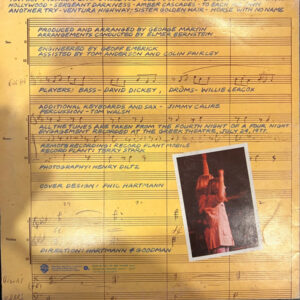 HOLLYWOOD - SERGEANT DARKNESS - AMBER CASCADES - TO EACH
ANOTHER TRY - VENTURA HIGHWAY - SISTER GOLDEN HAIR - HORSE WITH NO NAME
PRODUCED AND ARRANGED BY GEORGE MARTIN
ARRANGEMENTS CONDUCTED BY ELMER BERNSTEIN
ENGINEERED BY GEOFF EMERICK
ASSISTED BY TOM ANDERSON AND COLIN FAIRLEY
PLAYERS: BASS - DAVID DICKEY, DRUMS - WILLIE LEACOX
ADDITIONAL KEYBOARDS AND SAX - JIMMY CALIRE
PERCUSSION - TOM WALSH
ALL THE TUNES ARE TAKEN FROM THE FOURTH NIGHT OF A FOUR NIGHT
ENGAGEMENT RECORDED AT THE GREEK THEATRE, JULY 29, 1977.
REMOTE RECORDING: RECORD PLANT MOBILE
RECORD PLANT: TERRY STARK
PHOTOGRAPHY: HENRY DILTZ
COVER DESIGN: PHIL HARTMANN
DIRECTION: HARTMANN & GOODMAN